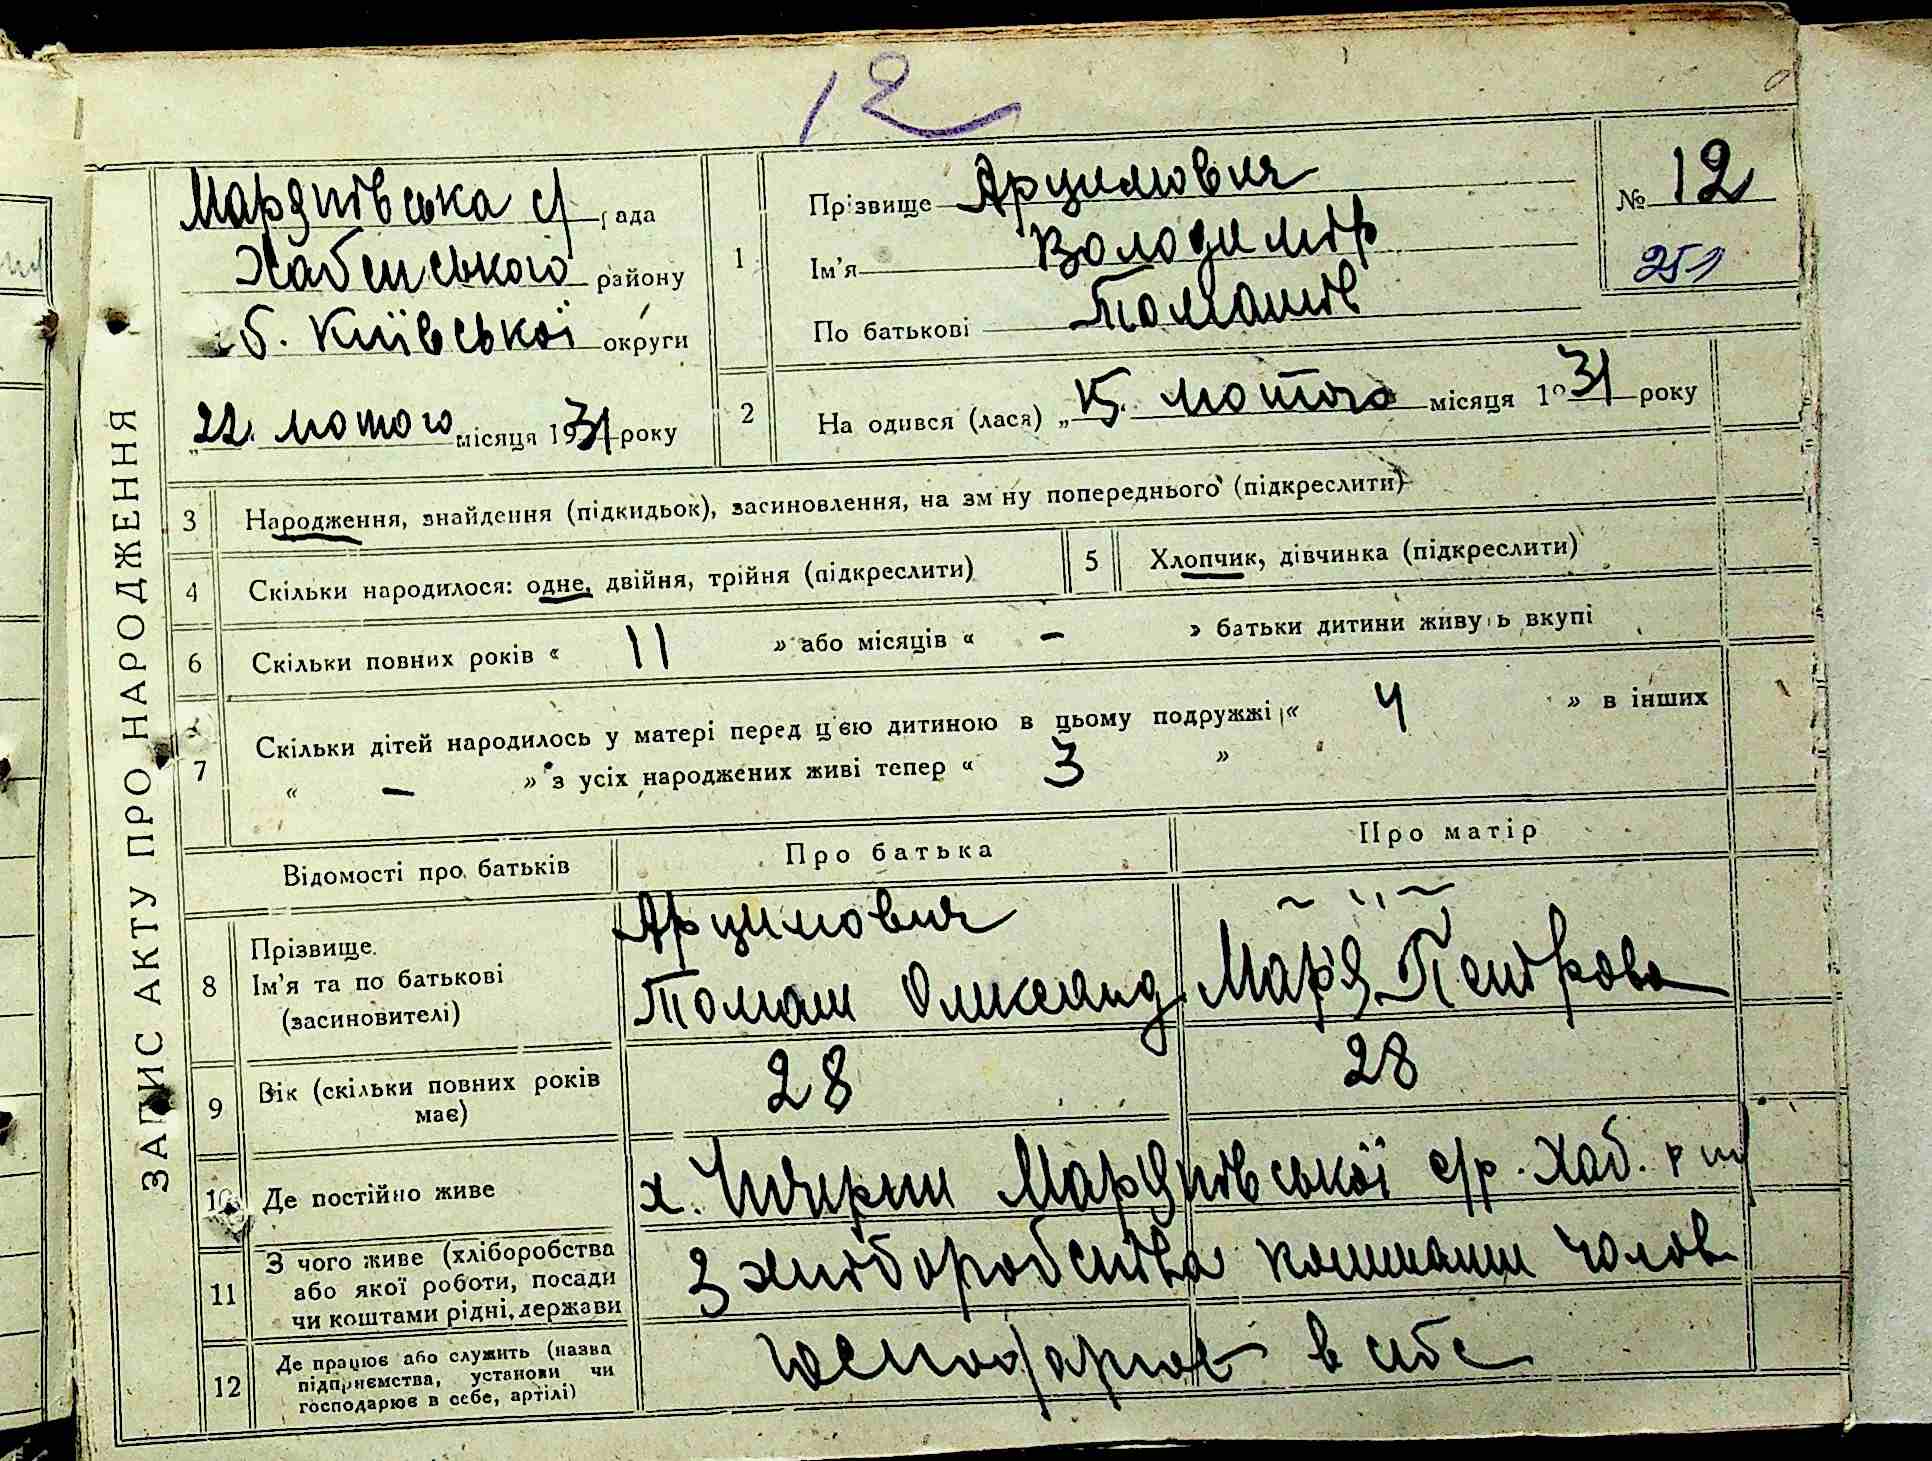 12
ЗАПИС АКТУ ПРО НАРОДЖЕННЯ
Мар'янівська с/ рада
Хабенського району
б. Київської округи
„22" лютого місяця 1931 року
1
Прізвище Арцимович
Ім'я Володимір
По батькові Томашів
№ 12
251
2
На одився (лася) „15" лютого місяця 1931 року
3 Народження, знайдення (підкидьок), засиновлення, на зм ну попереднього (підкреслити)
4 Скільки народилося: одне, двійня, трійня (підкреслити)
5 Хлопчик, дівчинка (підкреслити)
6 Скільки повних років « 11 » або місяців « – » батьки дитини живуть вкупі
7 Скільки дітей народилось у матері перед цією дитиною в цьому подружжі « 4 » в інших
« – » з усіх народжених живі тепер « 3 »
Відомості про батьків
Про батька
Про матір
8 Прізвище.
Ім'я та по батькові
(засиновителі)
Арцимович
Томаш Олександ.
~ " ~
Мар'я Петрова
9 Вік (скільки повних років
має)
28
28
10 Де постійно живе
х. Мар'янівської с/р. Хаб. р
11 З чого живе (хліборобства
або якої роботи, посади
чи коштами рідні, держави
З хліборобства коштами чолов
12 Де працює або служить (назва
підприємства, установи чи
господарює в себе, артілі)
господарює в себе